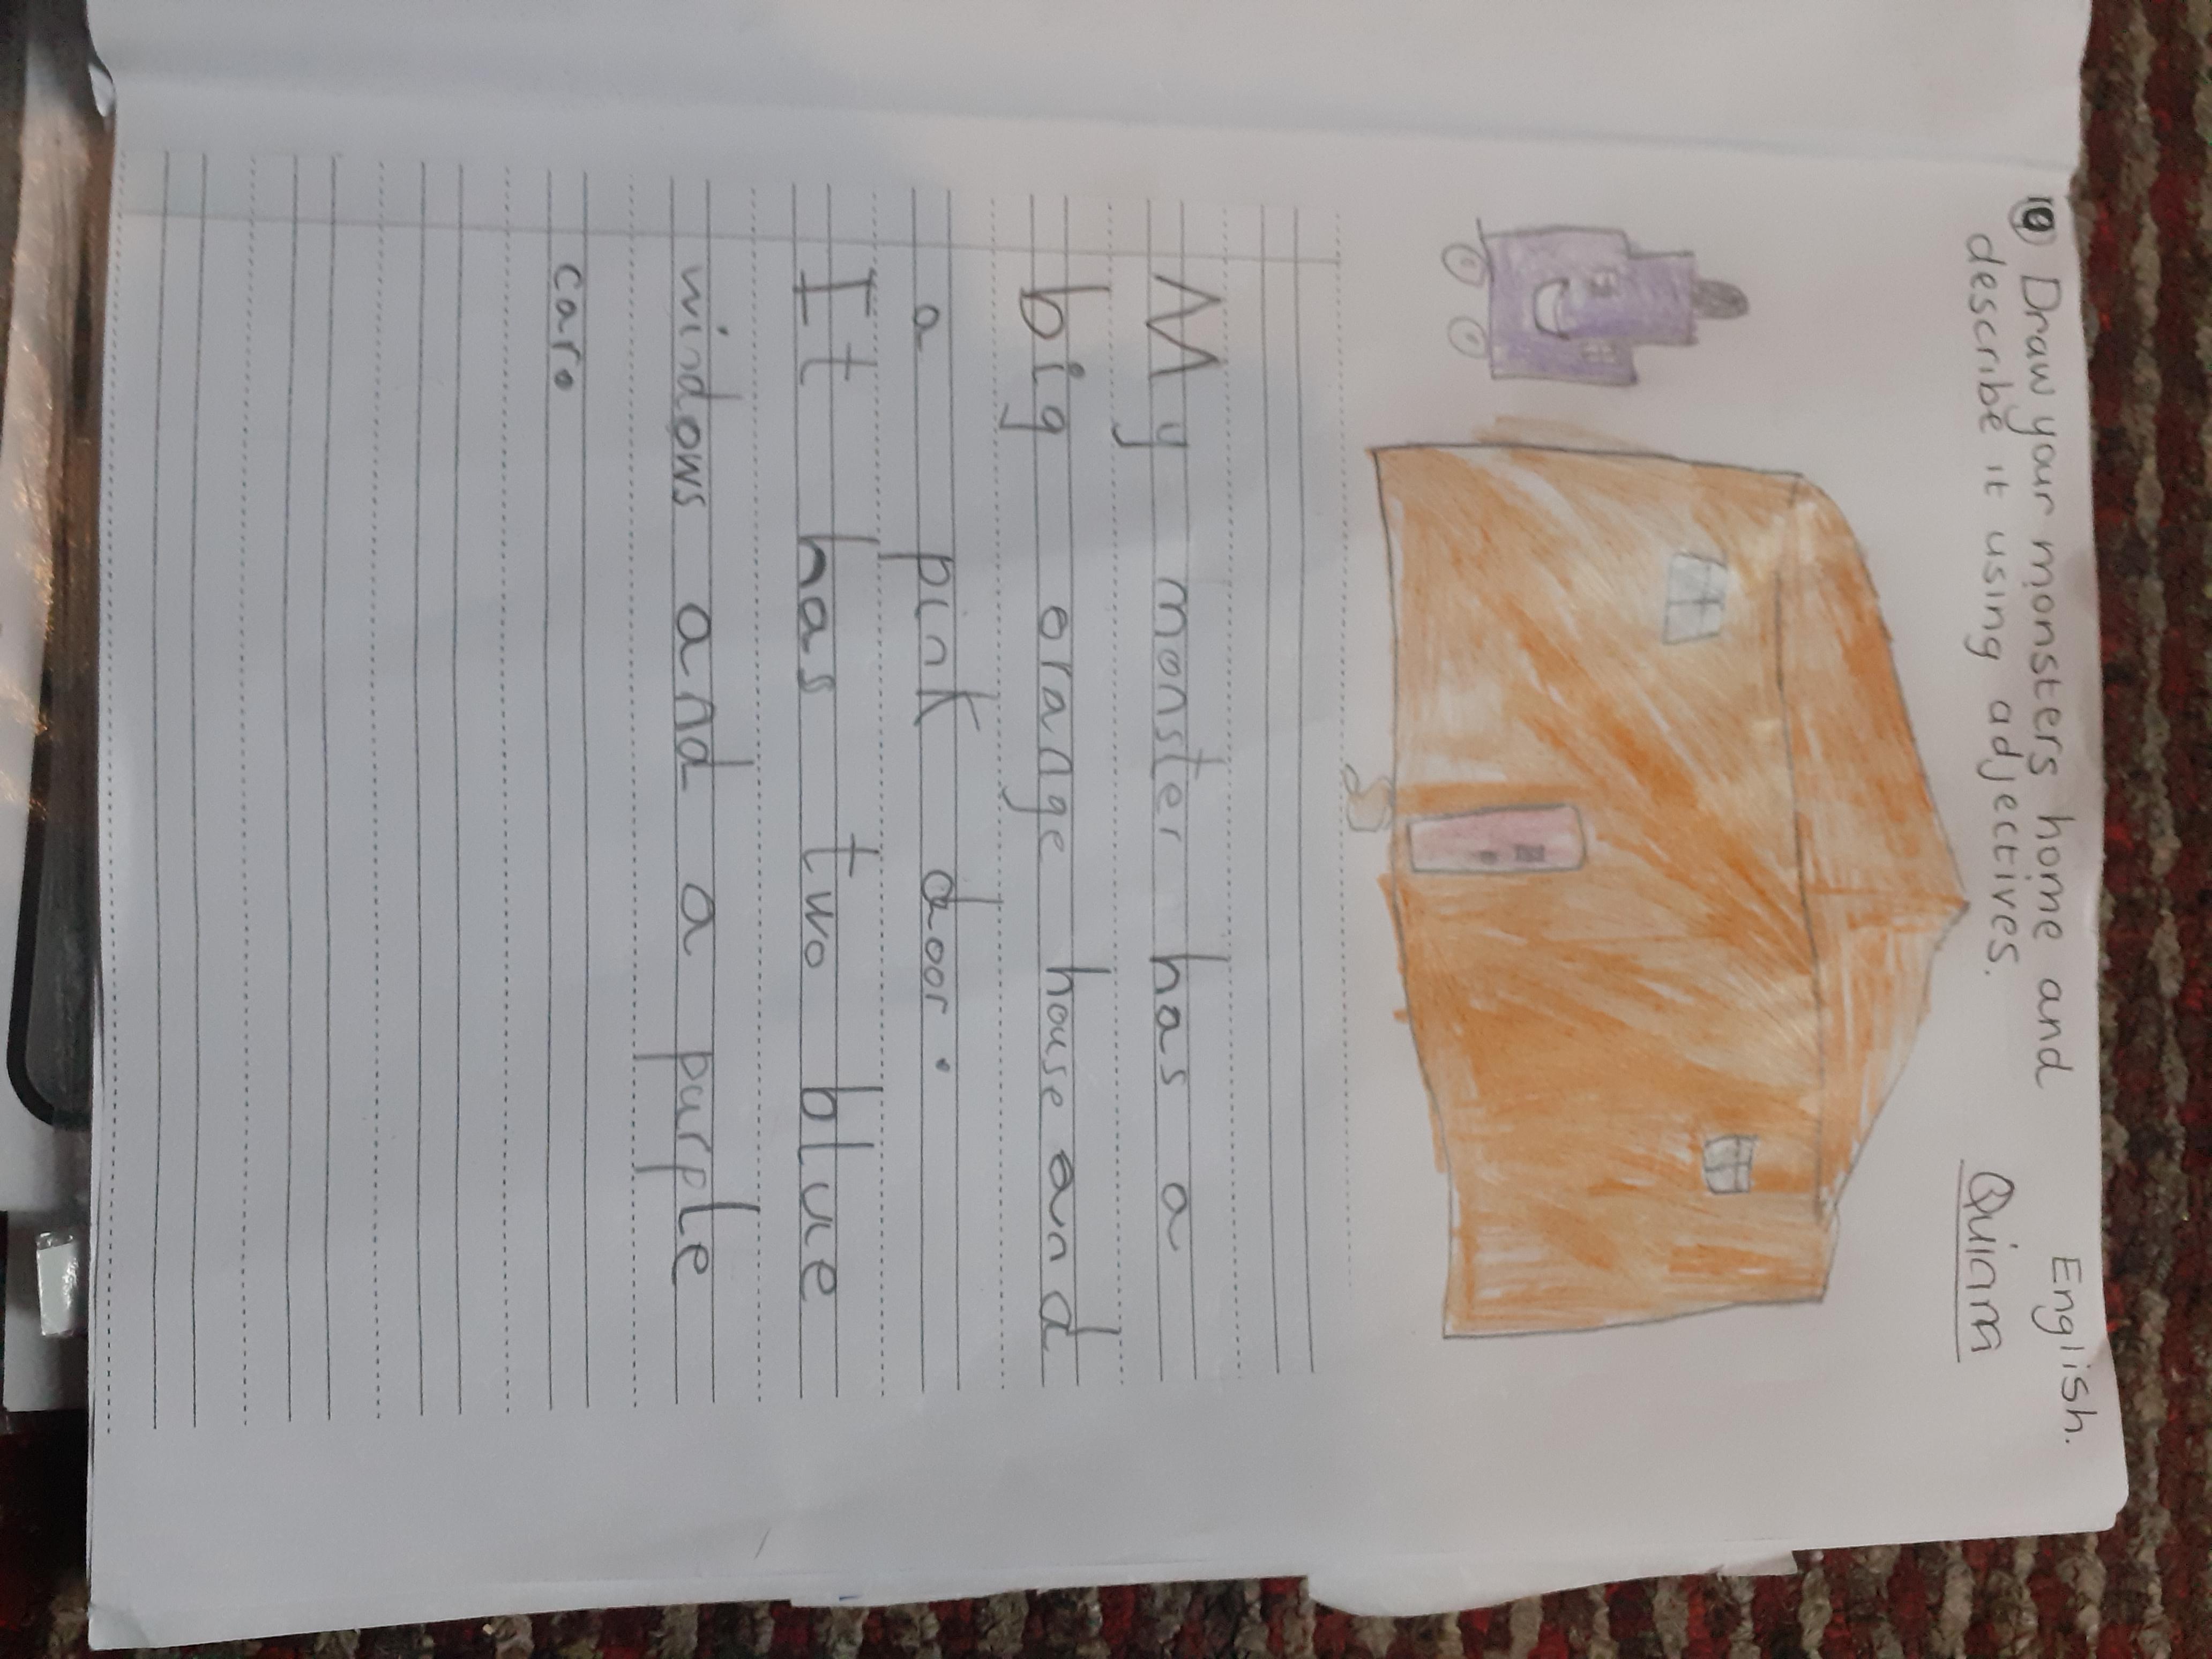 English.
10 Draw your monsters home and
describe it using adjectives.
Quinn
My monster has a
big orange house and
a pink door.
It has two blue
windows and a purple
car.